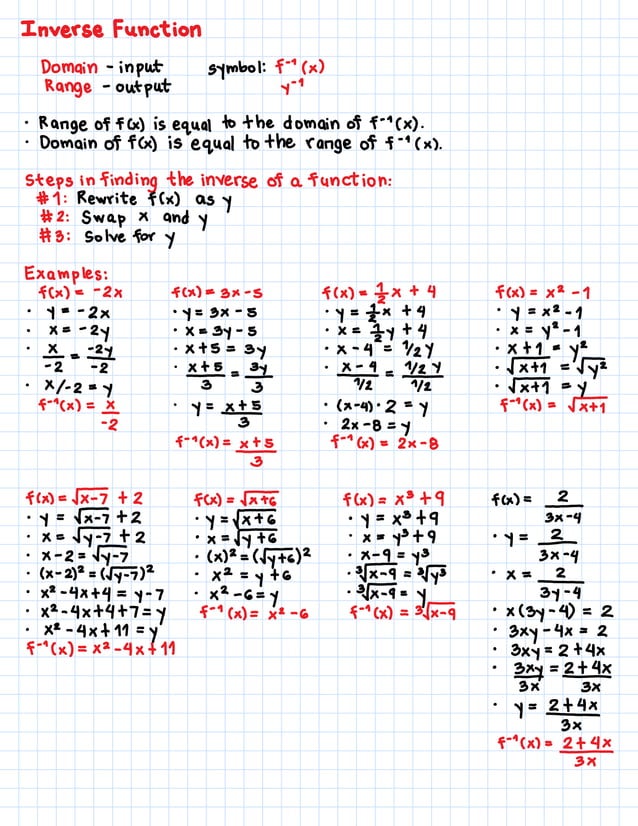 Inverse Function
Domain - input symbol: f⁻¹(x)
Range - output y⁻¹
· Range of f(x) is equal to the domain of f⁻¹(x).
· Domain of f(x) is equal to the range of f⁻¹(x).
Steps in finding the inverse of a function:
#1: Rewrite f(x) as y
#2: Swap x and y
#3: Solve for y
Examples:
f(x) = -2x
· y = -2x
· x = -2y
· x/-2 = -2y/-2
· x/-2 = y
f⁻¹(x) = x/-2
f(x) = 3x - 5
· y = 3x - 5
· x = 3y - 5
· x + 5 = 3y
· x+5/3 = 3y/3
· y = x+5/3
f⁻¹(x) = x+5/3
f(x) = 1/2 x + 4
· y = 1/2 x + 4
· x = 1/2 y + 4
· x - 4 = 1/2 y
· x - 4/1/2 = 1/2 y/1/2
· (x-4)·2 = y
· 2x - 8 = y
f⁻¹(x) = 2x - 8
f(x) = x² - 1
· y = x² - 1
· x = y² - 1
· x + 1 = y²
· √x+1 = √y²
· √x+1 = y
f⁻¹(x) = √x+1
f(x) = √x-7 + 2
· y = √x-7 + 2
· x = √y-7 + 2
· x - 2 = √y-7
· (x-2)² = (√y-7)²
· x² - 4x + 4 = y - 7
· x² - 4x + 4 + 7 = y
· x² - 4x + 11 = y
f⁻¹(x) = x² - 4x + 11
f(x) = √x+6
· y = √x+6
· x = √y+6
· (x)² = (√y+6)²
· x² = y + 6
· x² - 6 = y
f⁻¹(x) = x² - 6
f(x) = x³ + 9
· y = x³ + 9
· x = y³ + 9
· x - 9 = y³
· ³√x-9 = ³√y³
· ³√x-9 = y
f⁻¹(x) = ³√x-9
f(x) = 2/3x-4
· y = 2/3x-4
· x = 2/3y-4
· x(3y-4) = 2
· 3xy - 4x = 2
· 3xy = 2 + 4x
· 3xy/3x = 2+4x/3x
· y = 2+4x/3x
f⁻¹(x) = 2+4x/3x